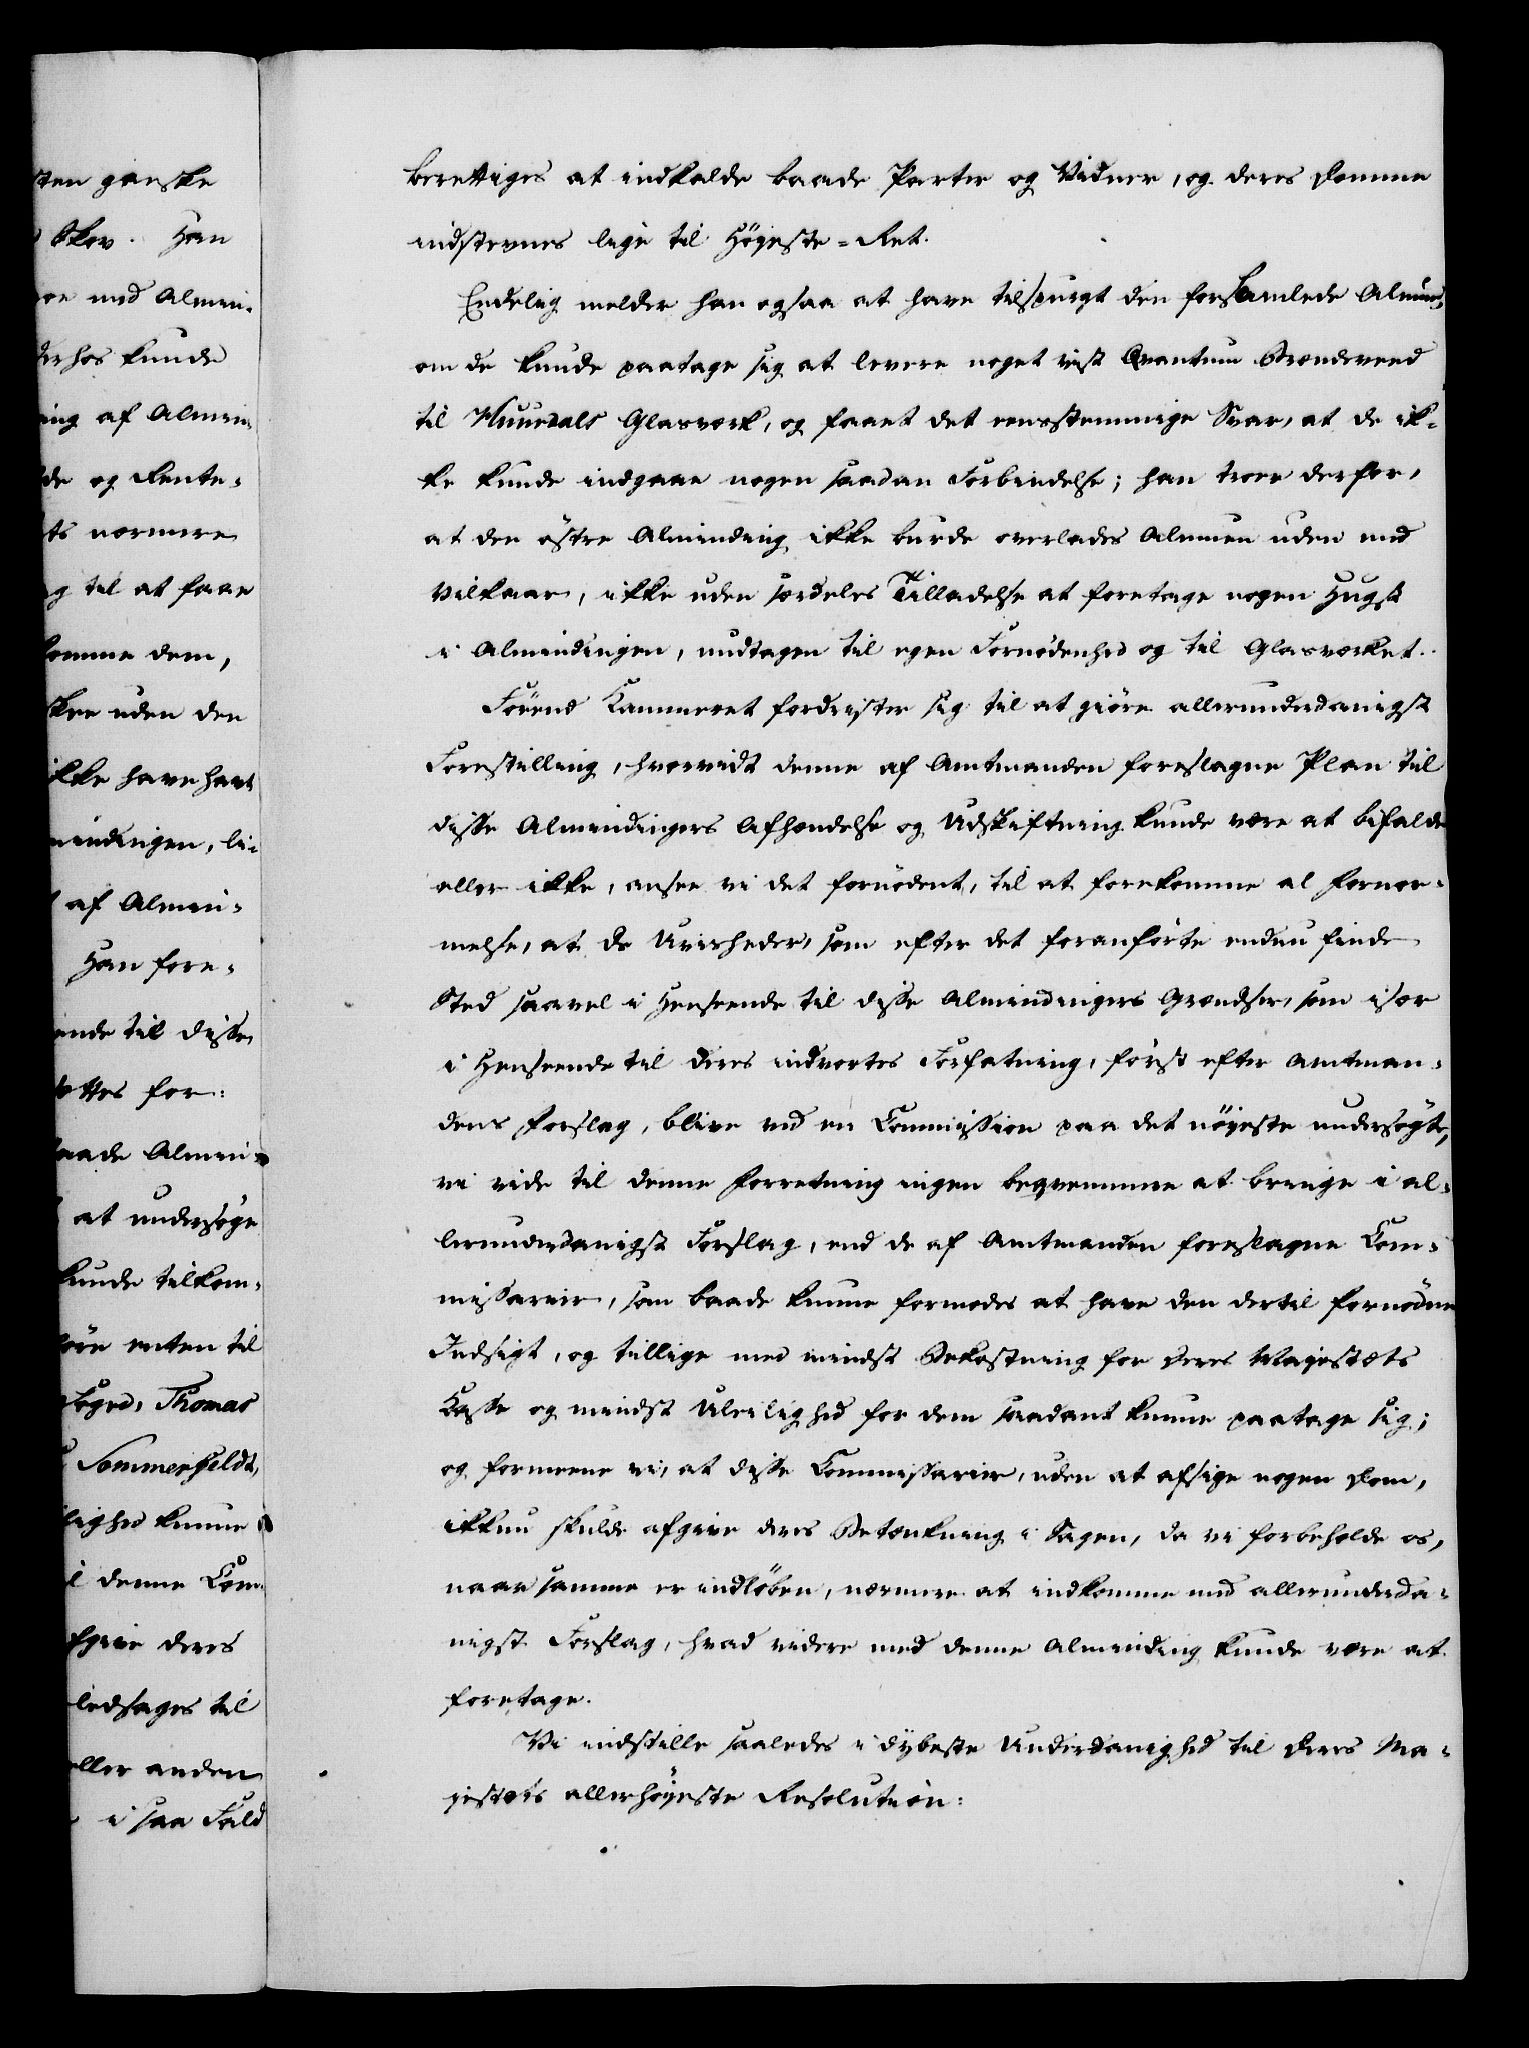 sten ganske
Skov. Han
med Almin¬
derhos kunde
ning af Almin¬
de og Rente¬
ts nærmere
g til at faae
komme dem,
skee uden den
ikke have havt
mindingen, li¬
af Almin¬
Han fore¬
ende til disse
ettes for¬
baade Almin¬
at undersøge
kunde tilkom¬
øre enten til
Foged, Thomas
Sommerfeldt,
lighed kunne
l denne Com¬
fgive deres
ledsages til
eller anden
i saa Fald
berettiges at indkalde baade Parter og Vidner, og deres Domme
indstevnes lige til Høyeste-Ret.
Endelig melder han ogsaa at have tilspurgt den forsamlede Almue,
om de kunde paatage sig at levere noget vist Qvantum Brændeveed
til Huurdals Glasværk, og faaet det eensstemmige Svar, at de ik¬
ke kunde indgaae nogen saadan Forbindelse; han troer derfor,
at den østre Alminding ikke burde overlades Almuen uden med
Vilkaar, ikke uden særdeles Tilladelse at foretage nogen Hugst
i Almindingen, undtagen til egen Fornødenhed og til Glasværket.
Førend Kammeret fordrister sig til at giøre allerunderdanigst
Forestilling, hvorvidt denne af Amtmanden foreslagne Plan til
disse Almindingers Afhændelse og Udskiftning kunde være at bifalde
eller ikke, ansee vi det fornødent, til at forekomme al Fornær¬
melse, at de Uvisheder, som efter det foranførte endnu finde
Sted saavel i Henseende til disse Almindingers Grændser, som især
i Henseende til deres indvortes Forfatning, først efter Amtman¬
dens Forslag, blive ved en Commission paa det nøyeste undersøgte,
vi vide til denne Forretning ingen beqvemmere at bringe i al¬
lerunderdanigst Forslag, end de af Amtmanden foreslagne Com¬
missarier, som baade kunne formodes at have den dertil fornødne
Indsigt, og tillige med mindst Bekostning for Deres Majestæts
Kasse og mindst Uleilighed for dem saadant kunne paatage sig;
og formeene vi, at disse Commissarier, uden at afsige nogen Dom,
ikkun skulde afgive deres Betænkning i Sagen, da vi forbeholde os,
naar samme er indløben, nærmere at indkomme med allerunderda¬
nigst Forslag, hvad videre med denne Alminding kunde være at
foretage.
Vi indstille saaledes i dybeste Underdanighed til Deres Ma¬
jestæts allerhøyeste Resolution: